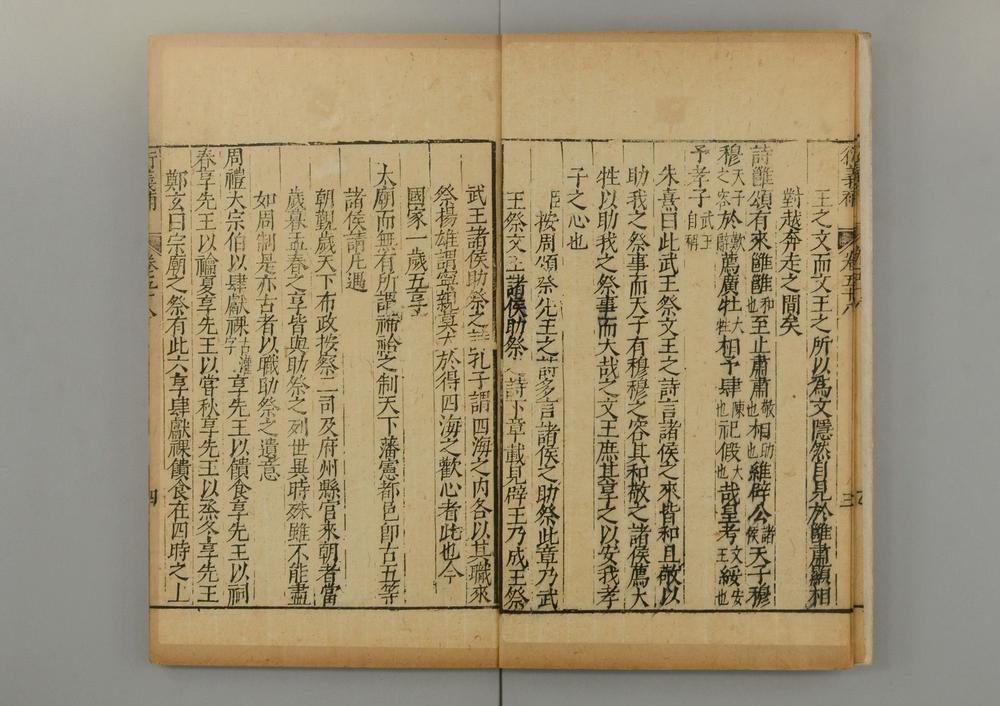 王之文而文王之所以為文隱然自見於雝肅顯相
對越奔走之間矣
詩雝頌有來雝雝和也至止肅肅敬也相助也維辟公諸侯天子穆
穆天子之容於歎辭薦廣牡大牲相予肆陳也祀假大也哉皇考文王綏安也
予孝子武王自稱
朱熹曰此武王祭文王之詩言諸侯之來皆和且敬以
助我之祭事而天子有穆穆之容其和敬之諸侯薦大
牲以助我之祭事而大哉之文王庶其享之以安我孝
子之心也
臣按周頌祭先王之詩多言諸侯之助祭此章乃武
王祭文王諸侯助祭之詩下章載見辟王乃成王祭
武王諸侯助祭之詩孔子謂四海之內各以其職來
祭揚雄謂寧親莫大於得四海之歡心者此也今
國家一歲五享
太廟而無有所謂禘祫之制天下藩憲都邑即古五等
諸侯請凡遇
朝覲歲天下布政按察二司及府州縣官來朝者當
歲暮孟春之享皆與助祭之列世異時殊雖不能盡
如周制是亦古者以職助祭之遺意
周禮大宗伯以肆獻祼古灌字享先王以饋食享先王以祠
春享先王以禴夏享先王以嘗秋享先王以烝冬享先王
鄭玄曰宗廟之祭有此六享肆獻祼饋食在四時之上
衍義補 卷五十八 四